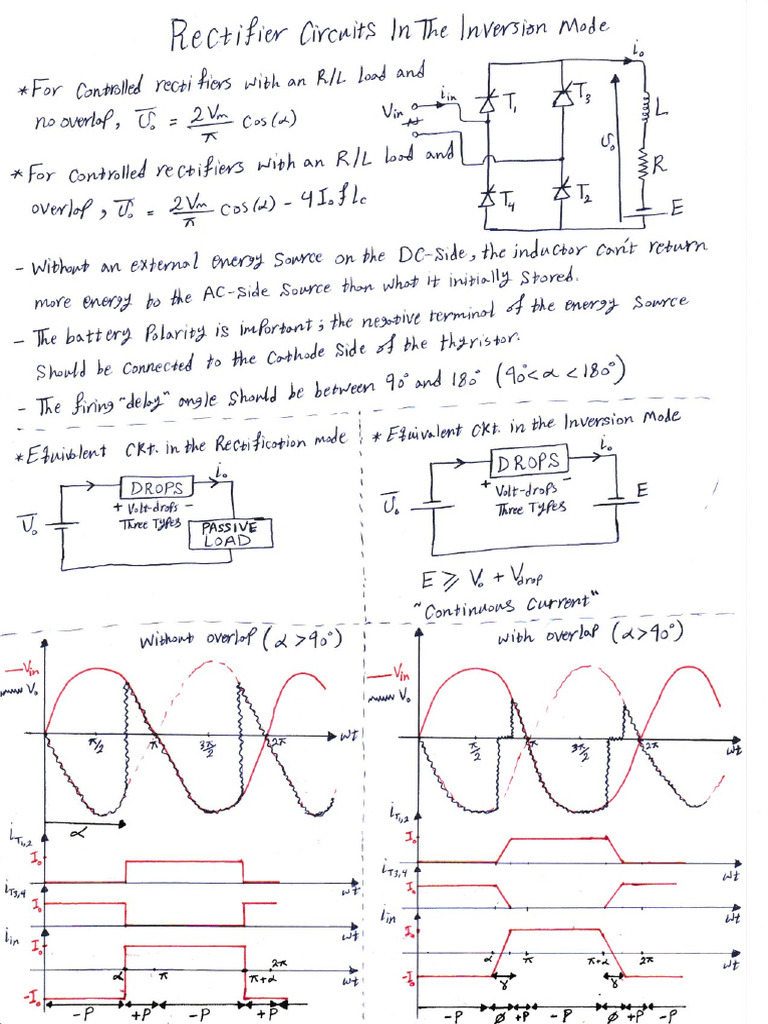 Rectifier Circuits In The Inversion Mode
* For Controlled rectifiers with an R/L Load and
no overlap, V̅o = 2Vm/π Cos(α)
* For Controlled rectifiers with an R/L Load and
overlap, V̅o = 2Vm/π Cos(α) - 4Io f Lc
Vin
iin
T1
T3
T4
T2
io
Vo
L
R
E
- Without an external energy Source on the DC-Side, the inductor can't return
more energy to the AC-Side Source than what it initially Stored.
- The battery Polarity is important; the negative terminal of the energy Source
Should be connected to the Cathode Side of the thyristor.
- The firing "delay" angle Should be between 90° and 180° (90° < α < 180°)
* Equivalent CKt. in the Rectification mode
V̅o
DROPS
+ Volt-drops -
Three Types
io
PASSIVE
LOAD
* Equivalent CKt. in the Inversion Mode
V̅o
DROPS
+ Volt-drops -
Three Types
io
E
E ⩾ Vo + Vdrop
"Continuous Current"
Without overlap (α > 90°)
Vin
Vo
π/2 π 3π/2 2π wt
α
iT1,2
Io
wt
iT3,4
Io
wt
iin
Io
α π π+α 2π
wt
-Io
-P +P -P +P
With overlap (α > 90°)
Vin
Vo
π/2 π 3π/2 2π wt
iT1,2
Io
wt
iT3,4
Io
wt
iin
Io
α π π+α 2π
wt
-Io
γ γ
-P ∅ +P -P ∅ +P -P